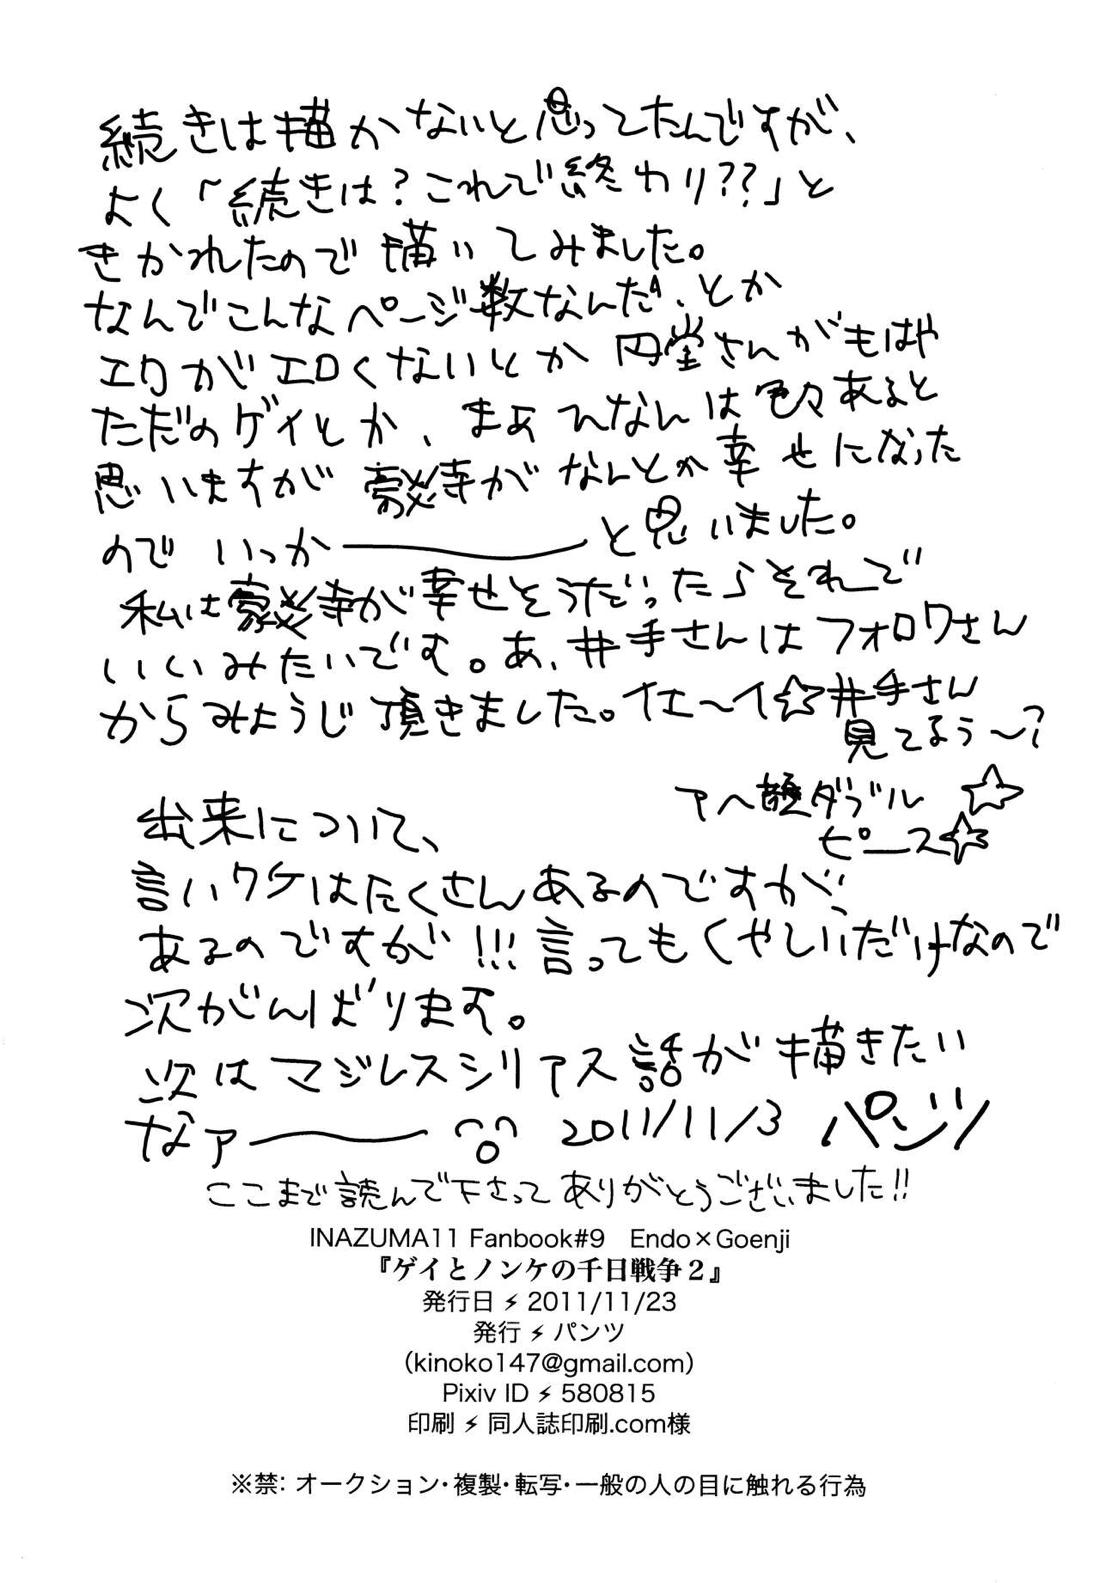 続きは描かないと思ってたんですが、
よく「続きは?これで終わり??」と
きかれたので描いてみました。
なんでこんなページ数なんだ、とか
エロがエロくないとか円堂さんがもはや
ただのゲイとか、まあ んなんは色々あると
思いますが豪炎寺がなんとか幸せになった
のでいっか――――と思いました。
私は豪炎寺が幸せそうだったらそれで
いいみたいです。あ、井手さんはフォロワさん
からみょうじ頂きました。イエ〜イ☆井手さん
見てるぅ〜?
アヘ顔ダブル☆
ピース☆
出来について、
言いワケはたくさんあるのですが、
あるのですが!!!言ってもくやしいだけなので
次がんばります。
次はマジレスシリアス話が描きたい
なァ―――― 2011/11/3 パンツ
ここまで読んで下さってありがとうございました!!
INAZUMA11 Fanbook#9 Endo×Goenji
『ゲイとノンケの千日戦争2』
発行日⚡2011/11/23
発行⚡パンツ
(kinoko147@gmail.com)
Pixiv ID⚡580815
印刷⚡同人誌印刷.com様
※禁: オークション・複製・転写・一般の人の目に触れる行為